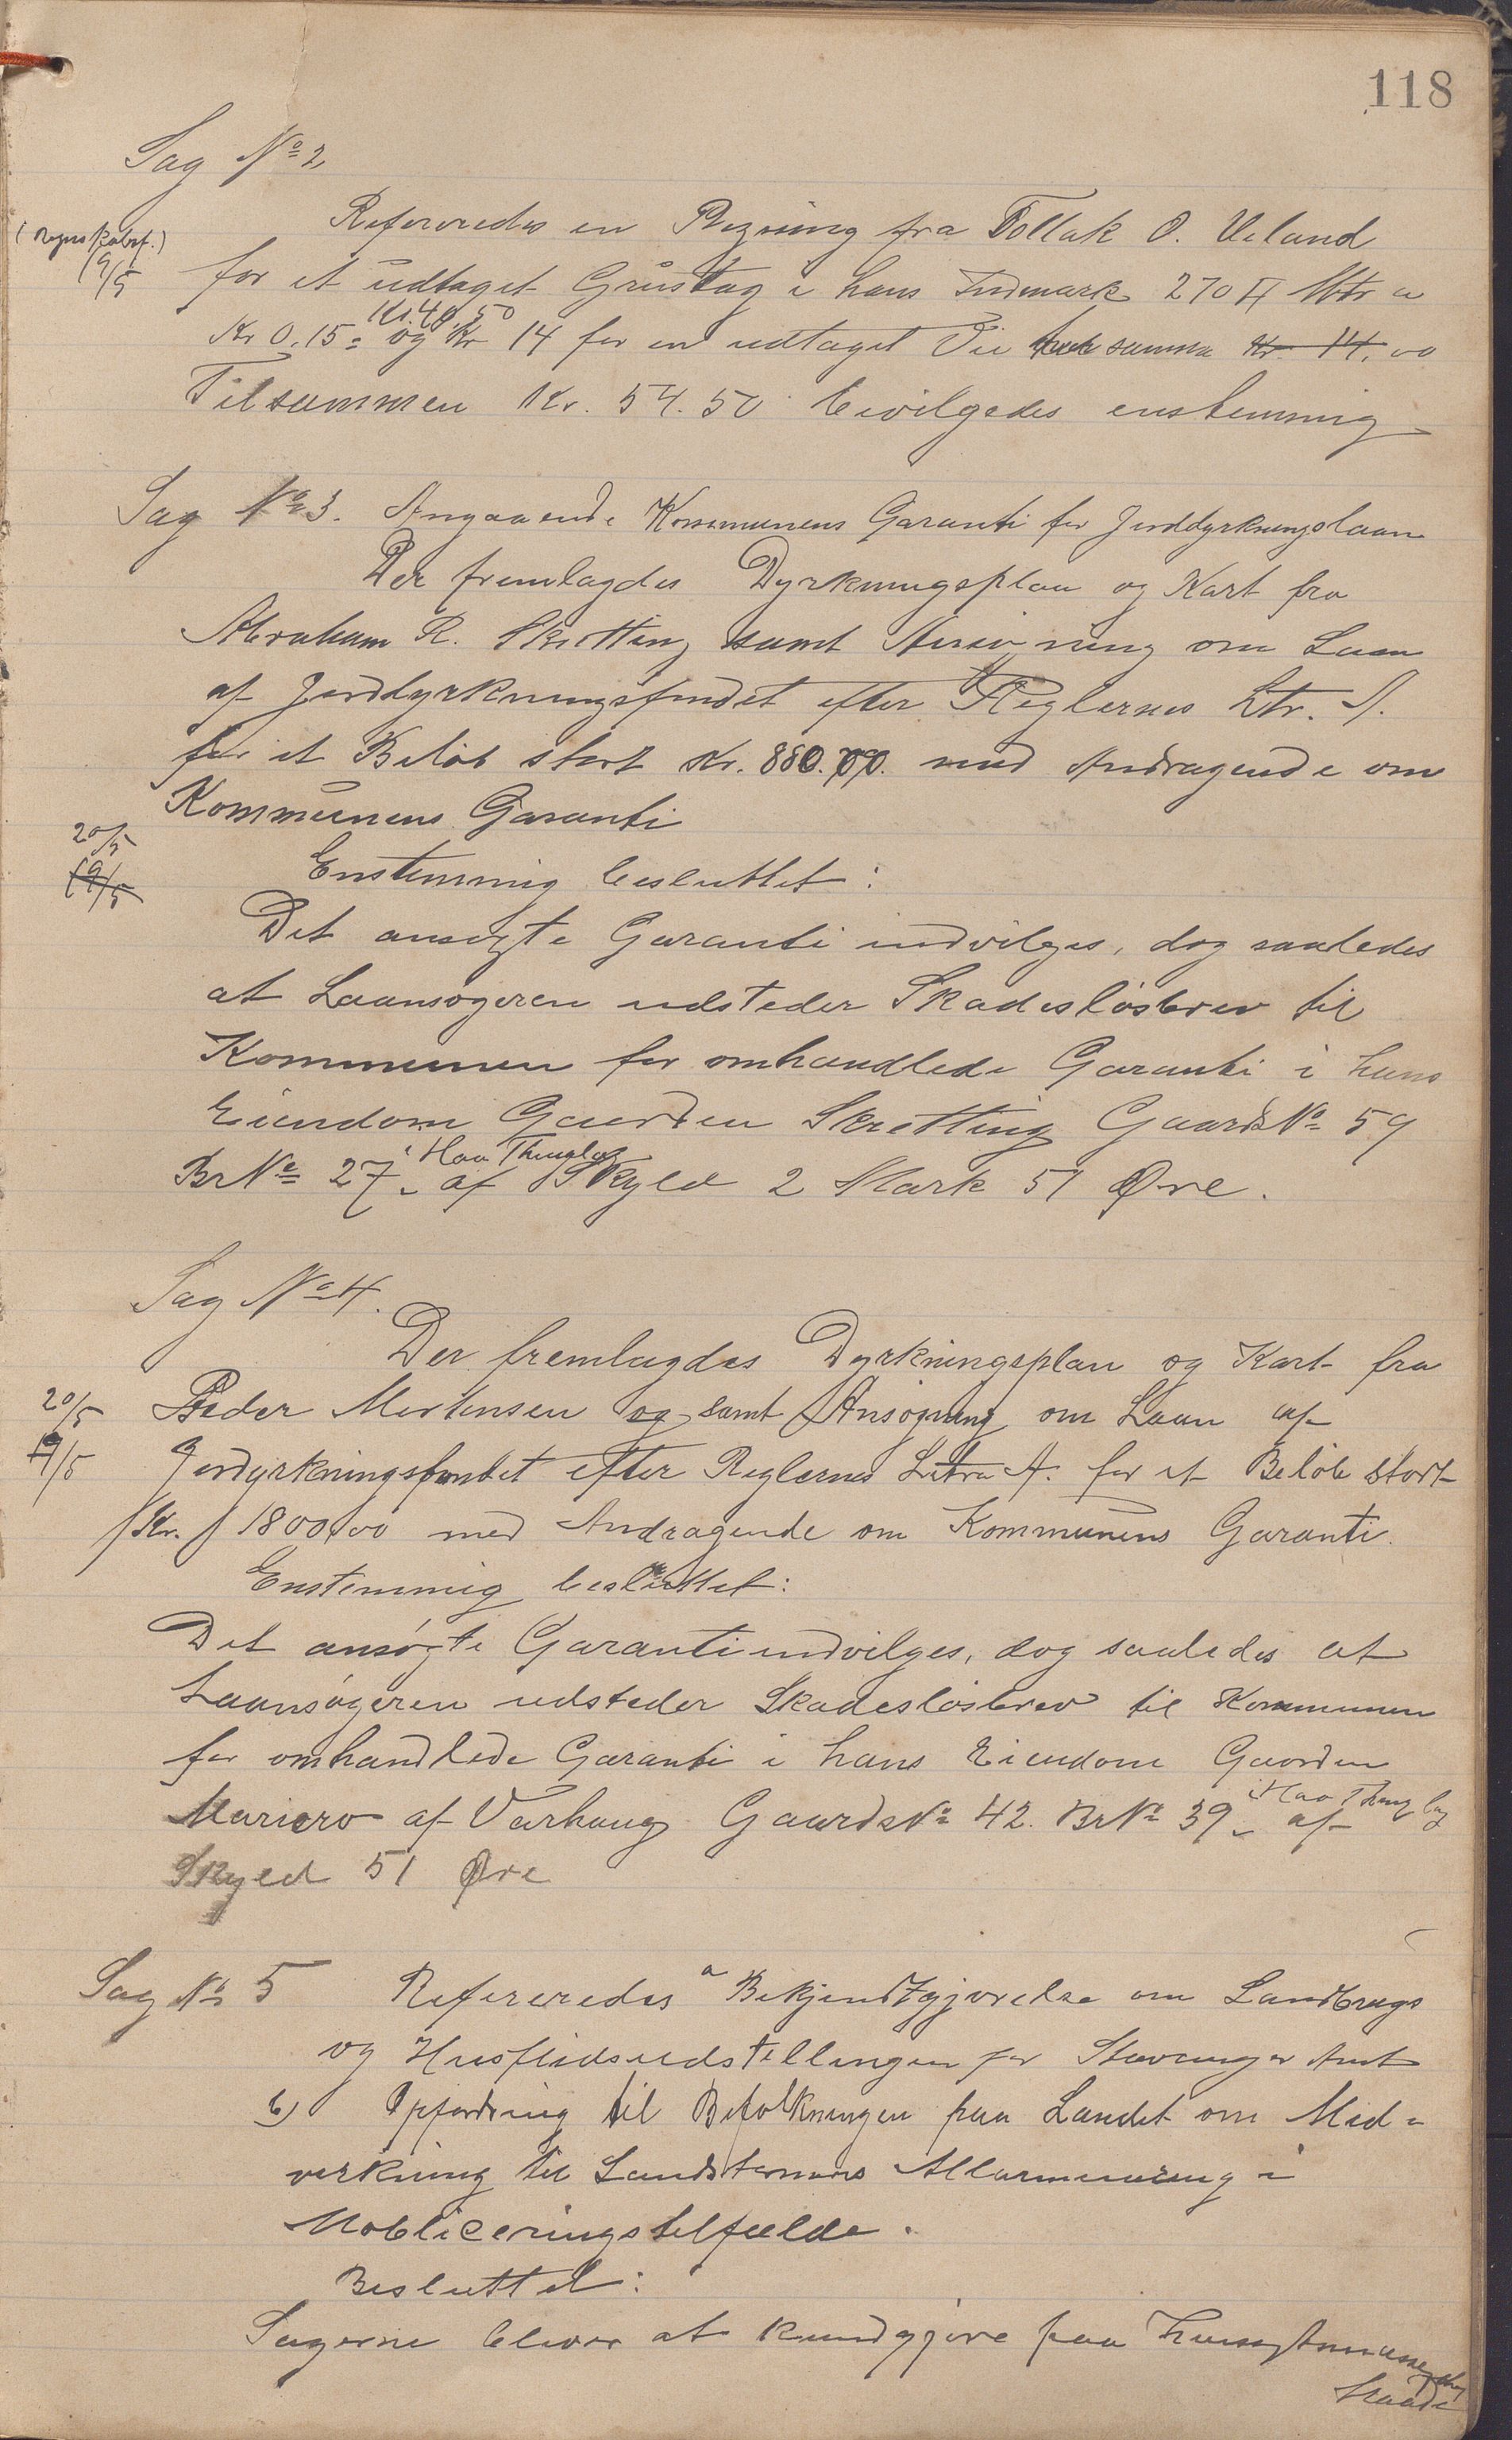 118
Sag No 2
Refereredes en Regning fra Tollak O. Ueland
(regnskabsf.)
19/5
for et udtaget Grustag i hans Indmark 270 □ Mtr a
Kr. 40.50
Kr 0.15 = og Kr 14 for en udtaget Vei samme Kr. 14.00
Tilsammen Kr. 54.50 bevilgedes enstemmig
Sag No 3. Angaaende Kommunens Garanti for Jorddyrkningslaan
Der fremlagdes Dyrkningsplan og Kart fra
Abraham R. Skretting samt Ansøgning om Laan
af Jorddyrkningsfondet efter Reglernes Ltr. A.
for et Beløb stort Kr. 880.00. med Andragende om
Kommunens Garanti
20/5
19/5
Enstemmig besluttet:
Det ansøgte Garanti indvilges, dog saaledes
at Laansøgeren udsteder Skadesløsbrev til
Kommunen for omhandlede Garanti i hans
Eiendom Gaarden Skretting Gaards No 59
i Haa Thinglag
Br No 27 af Skyld 2 Mark 51 Øre.
Sag No 4.
Der fremlagdes Dyrkningsplan og Kart fra
20/5
Peder Mortensen og samt Ansøgning om Laan af
19/5
Jordyrkningsfondet efter Reglernes Litra A. for et Beløb stort
Kr. 1800,00 med Andragende om Kommunens Garanti.
Enstemmig besluttet:
Det ansøgte Garanti indvilges, dog saaledes at
Laansøgeren udsteder Skadesløsbrev til Kommunen
for omhandlede Garanti i hans Eiendom Gaarden
i Haa Thinglag
Mariero af Varhaug Gaards No 42. Br No 39 af
Skyld 51 Øre
Sag No 5 Refereredes a Bekjendtgjørelse om Landbrugs
og Husflidsudstillingen for Stavanger Amt
b) Opfordring til Befolkningen paa Landet om Med-
virkning til Landstormens Allarmering i
Mobliceringstilfælde.
Besluttet:
Sagerne bliver at kundgjøre paa
Maade